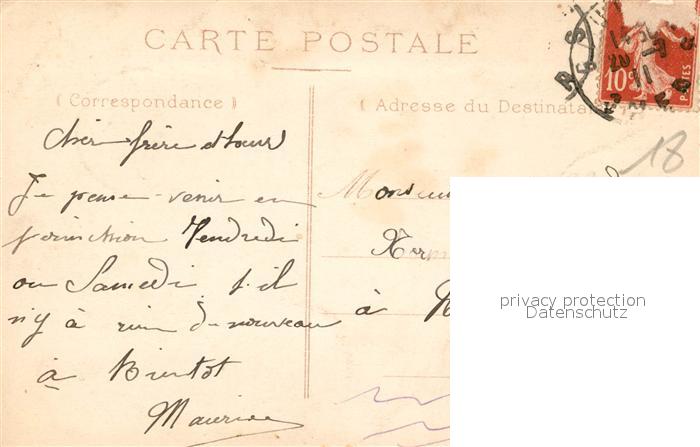 CARTE POSTALE
( Correspondance )
( Adresse du Destinatai
18
10c
POSTES
Cher frère et soeur
Je pense venir en
Vendredi
ou Samedi s'il
n'y a rien de nouveau
à Bientot
Maurice
Monsieur
à
privacy protection
Datenschutz